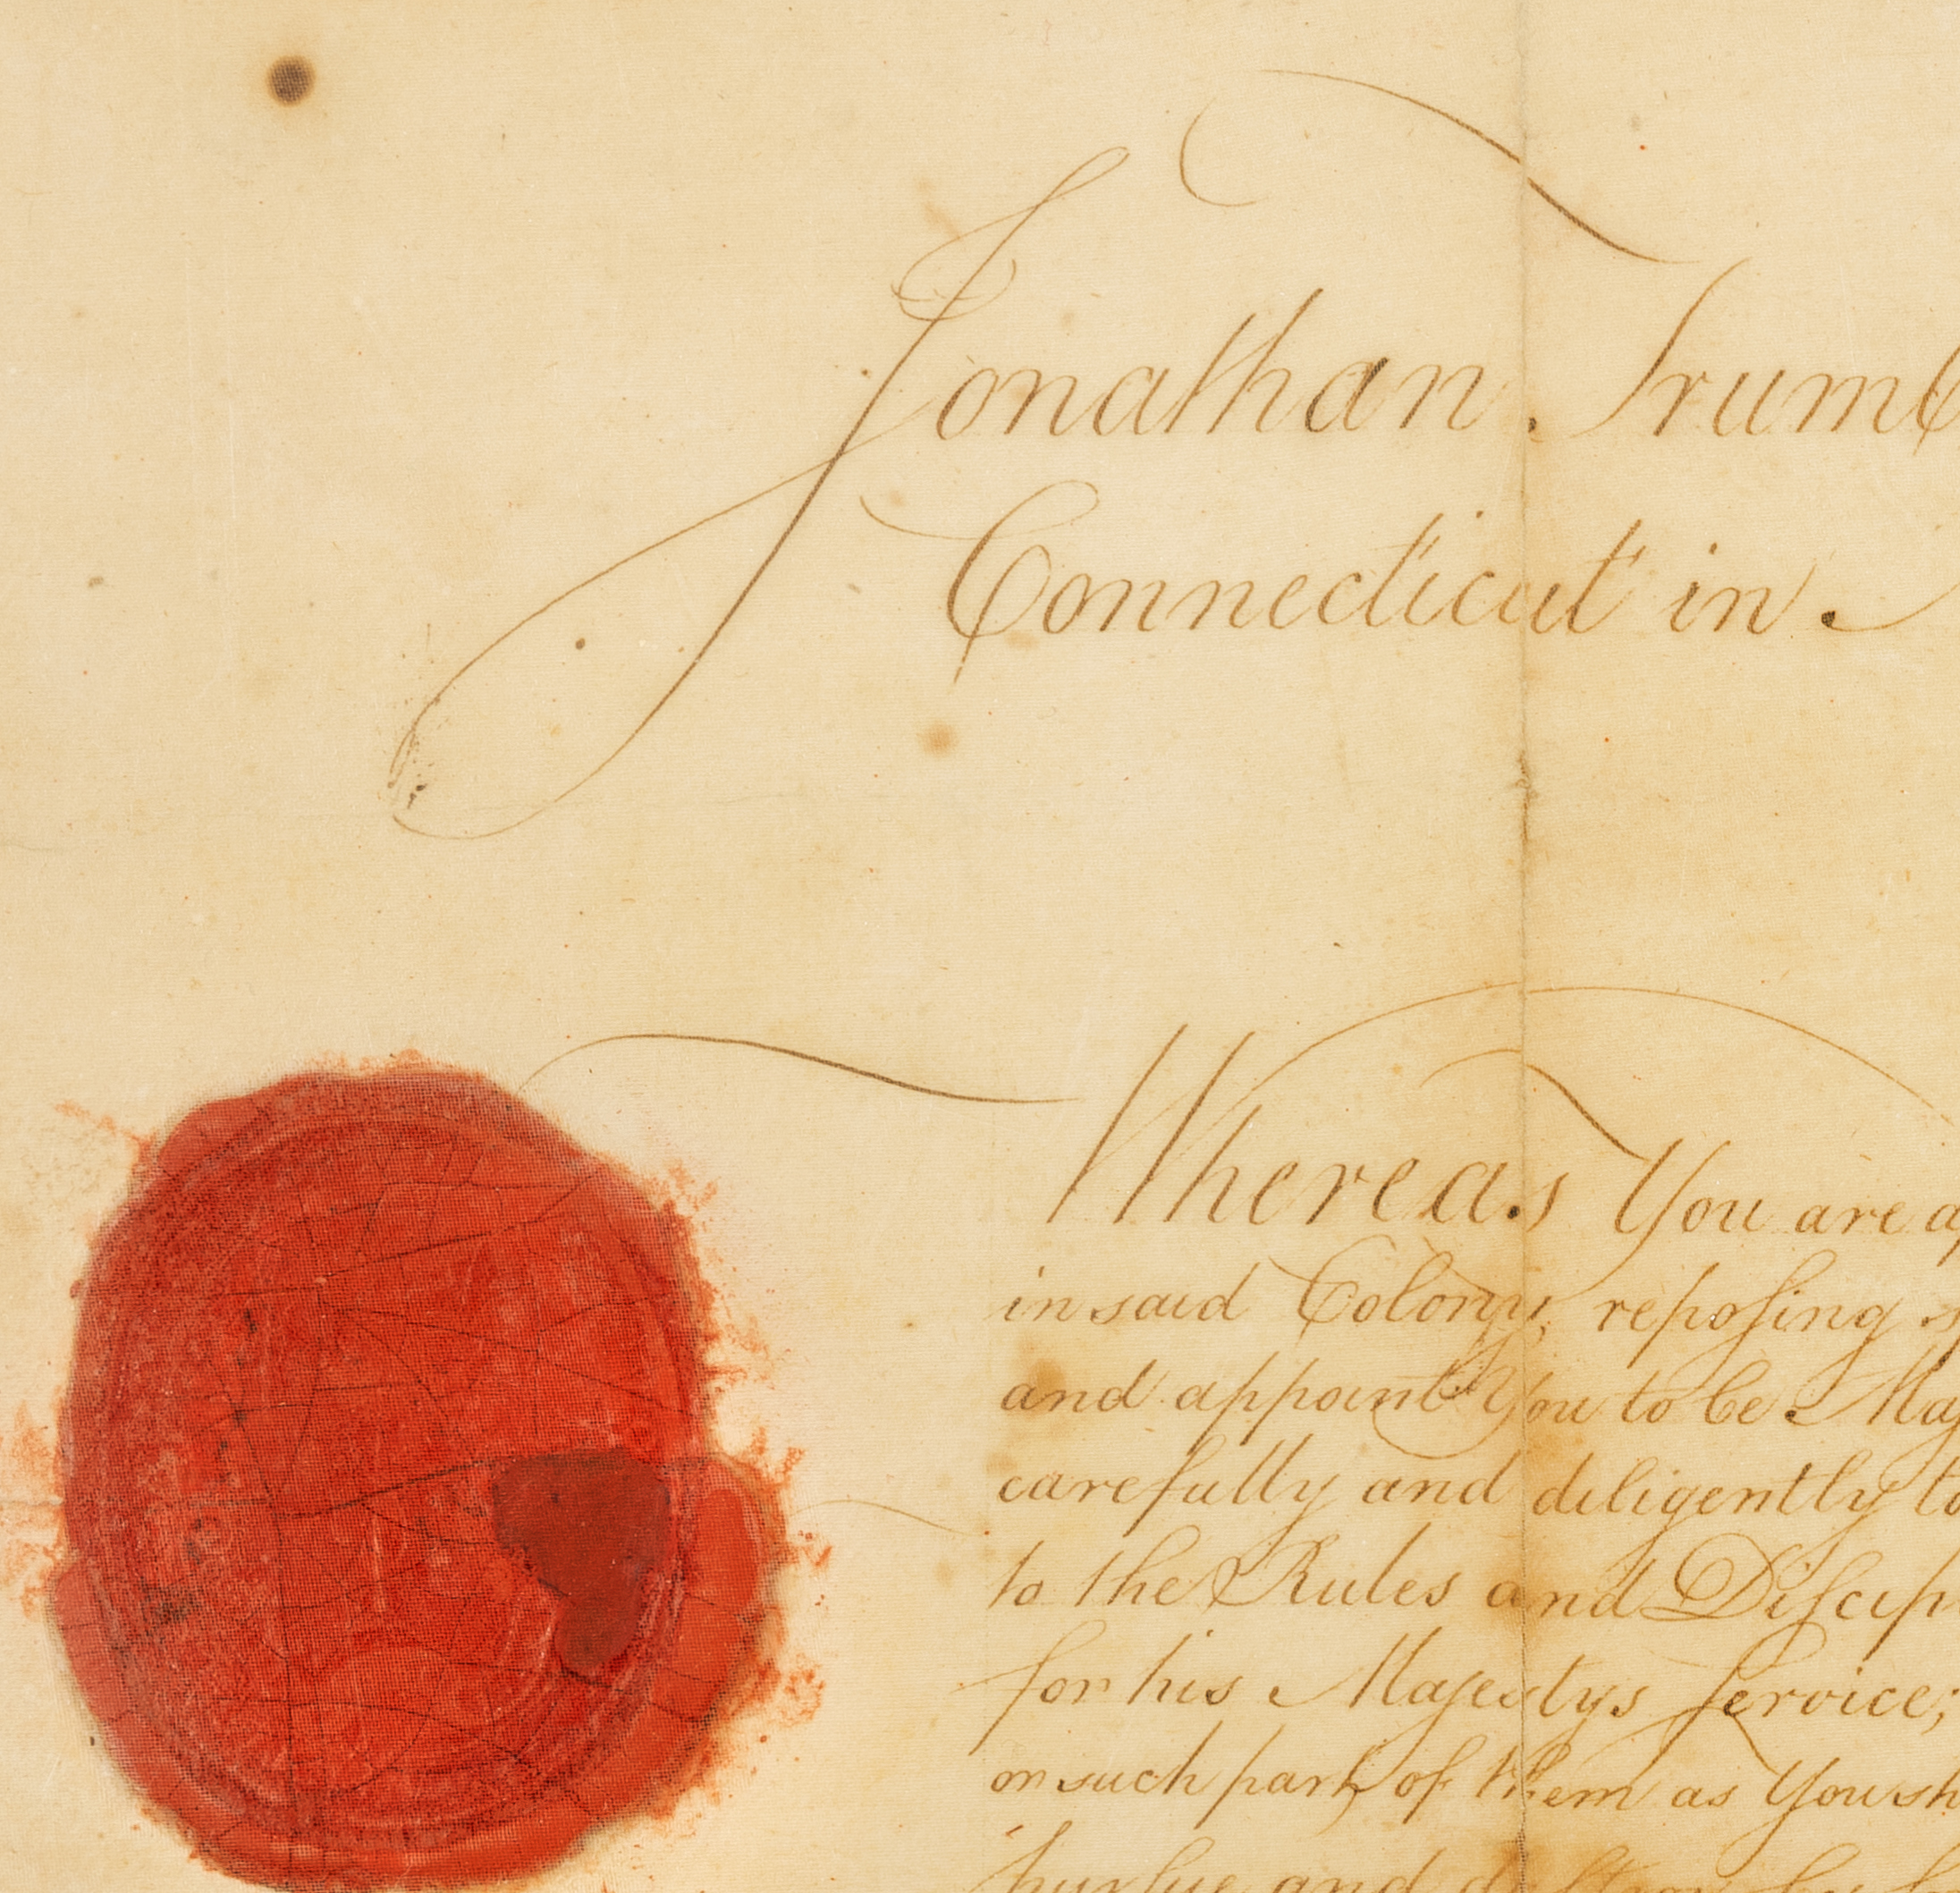 Jonathan Trumb
Connecticut in
Whereas You are a
in said Colony, reposing s
and appoint You to be Maj
carefully and diligently to
to the Rules and Discip
for his Majestys service;
or such part of them as You sh
pursue and destroy by f